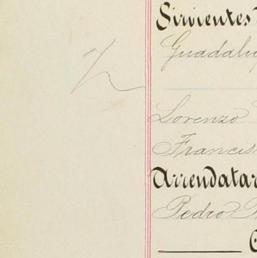 Sirvientes
Guadalu
Lorenzo
Francis
Arrendatar
Pedro